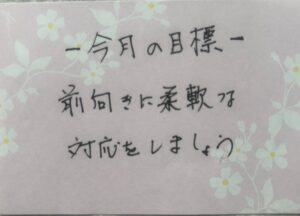 －今月の目標－
前向きに柔軟な
対応をしましょう